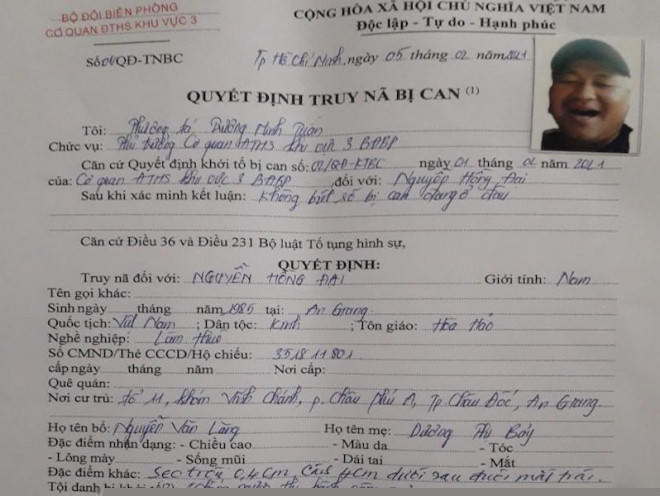 BỘ ĐỘI BIÊN PHÒNG
CƠ QUAN ĐTHS KHU VỰC 3
CỘNG HÒA XÃ HỘI CHỦ NGHĨA VIỆT NAM
Độc lập - Tự do - Hạnh phúc
Số:01/QĐ-TNBC
Tp Hồ Chí Minh, ngày 05 tháng 02 năm 2021
QUYẾT ĐỊNH TRUY NÃ BỊ CAN (1)
Tôi: Thượng tá Dương Minh Tuấn
Chức vụ: Phó trưởng Cơ quan ĐTHS khu vực 3 BĐBP
Căn cứ Quyết định khởi tố bị can số: 02/QĐ-KTBC ngày 01 tháng 02 năm 2021
của: Cơ quan ĐTHS khu vực 3 BĐBP đối với: Nguyễn Hồng Đai
Sau khi xác minh kết luận: Không biết bị can đang ở đâu
Căn cứ Điều 36 và Điều 231 Bộ luật Tố tụng hình sự,
QUYẾT ĐỊNH:
Truy nã đối với: NGUYỄN HỒNG ĐAI Giới tính: Nam
Tên gọi khác:
Sinh ngày tháng năm 1985 tại: An Giang
Quốc tịch: Việt Nam ; Dân tộc: Kinh ; Tôn giáo: Hòa Hảo
Nghề nghiệp: Làm thuê
Số CMND/Thẻ CCCD/Hộ chiếu: 351811801
cấp ngày tháng năm Nơi cấp:
Quê quán:
Nơi cư trú: tổ 11, khóm Vĩnh Chánh, p. Châu Phú A, Tp. Châu Đốc, An Giang
Họ tên bố: Nguyễn Văn Lăng Họ tên mẹ: Dương Thị Bảy
Đặc điểm nhận dạng: - Chiều cao - Màu da - Tóc
- Lông mày - Sống mũi - Dái tai - Mắt
Đặc điểm khác: Sẹo tròn 0,4cm cách 4cm dưới sau đuôi mắt trái.
Tội danh